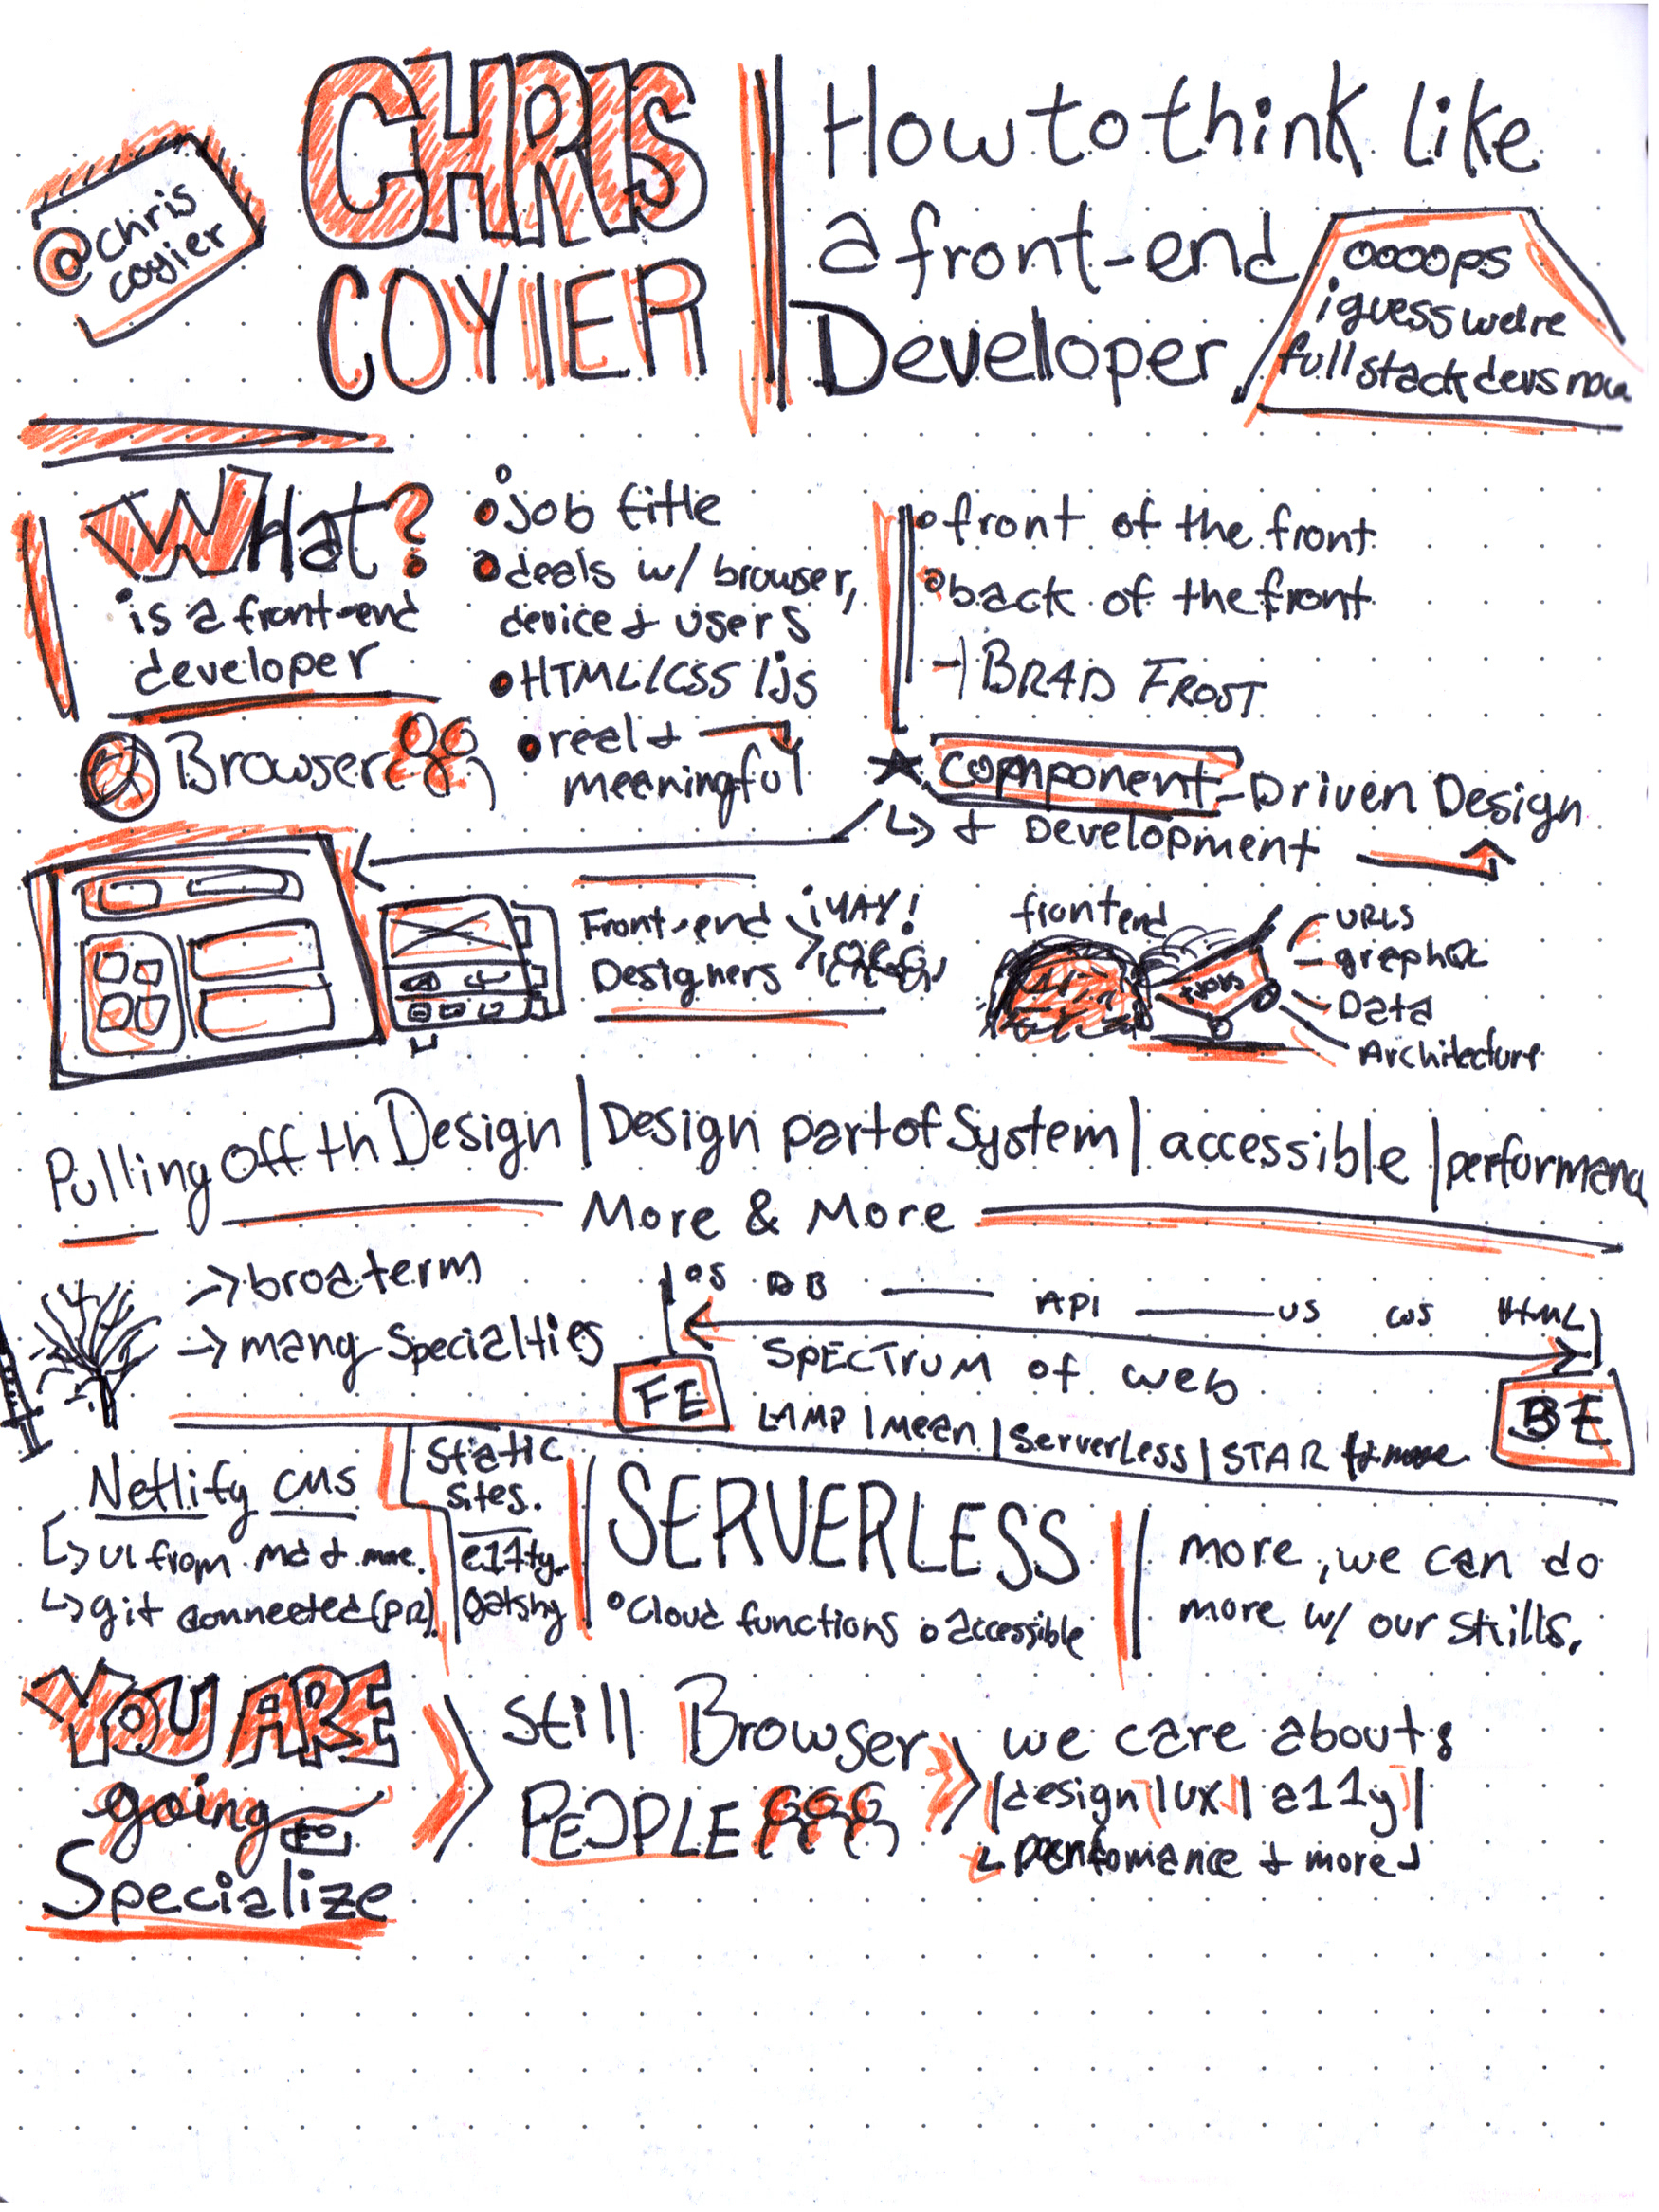 @chris
coyier
CHRIS
COYIER
How to think like
a front-end
Developer
oooops
i guess we're
full stack devs now
What?
is a front-end
developer
Browser
job title
deals w/ browser,
device & users
HTML/CSS/js
real &
meaningful
front of the front
back of the front
BRAD FROST
component-Driven Design
& Development
Front-end
Designers
¡YAY!
frontend
URLS
graphQL
Data
Architecture
Pulling off th Design | Design part of System | accessible | performanc
More & More
broa term
many Specialties
OS DB API US CSS HTML
SPECTRUM of web
FE
BE
LAMP | mean | Serverless | STAR & more
Netlify CMS
UI from md & more.
git connected (PR)
Static
sites.
e11ty.
gatsby
SERVERLESS
cloud functions
accessible
more, we can do
more w/ our skills.
YOU ARE
going to
Specialize
still Browser
PEOPLE
we care about:
|design|ux|a11y|
performance & more